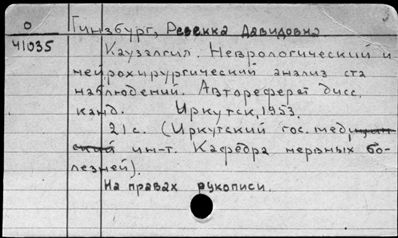 О Гинзбург, Ревекка Давидовна
41035
Каузалгия. Неврологический и
нейрохирургический анализ ста
наблюдений. Автореферат дисс.
канд. Иркутск, 1953.
21 с. (Иркутский гос. медицин
ский ин-т. Кафедра нервных бо-
лезней).
На правах рукописи.